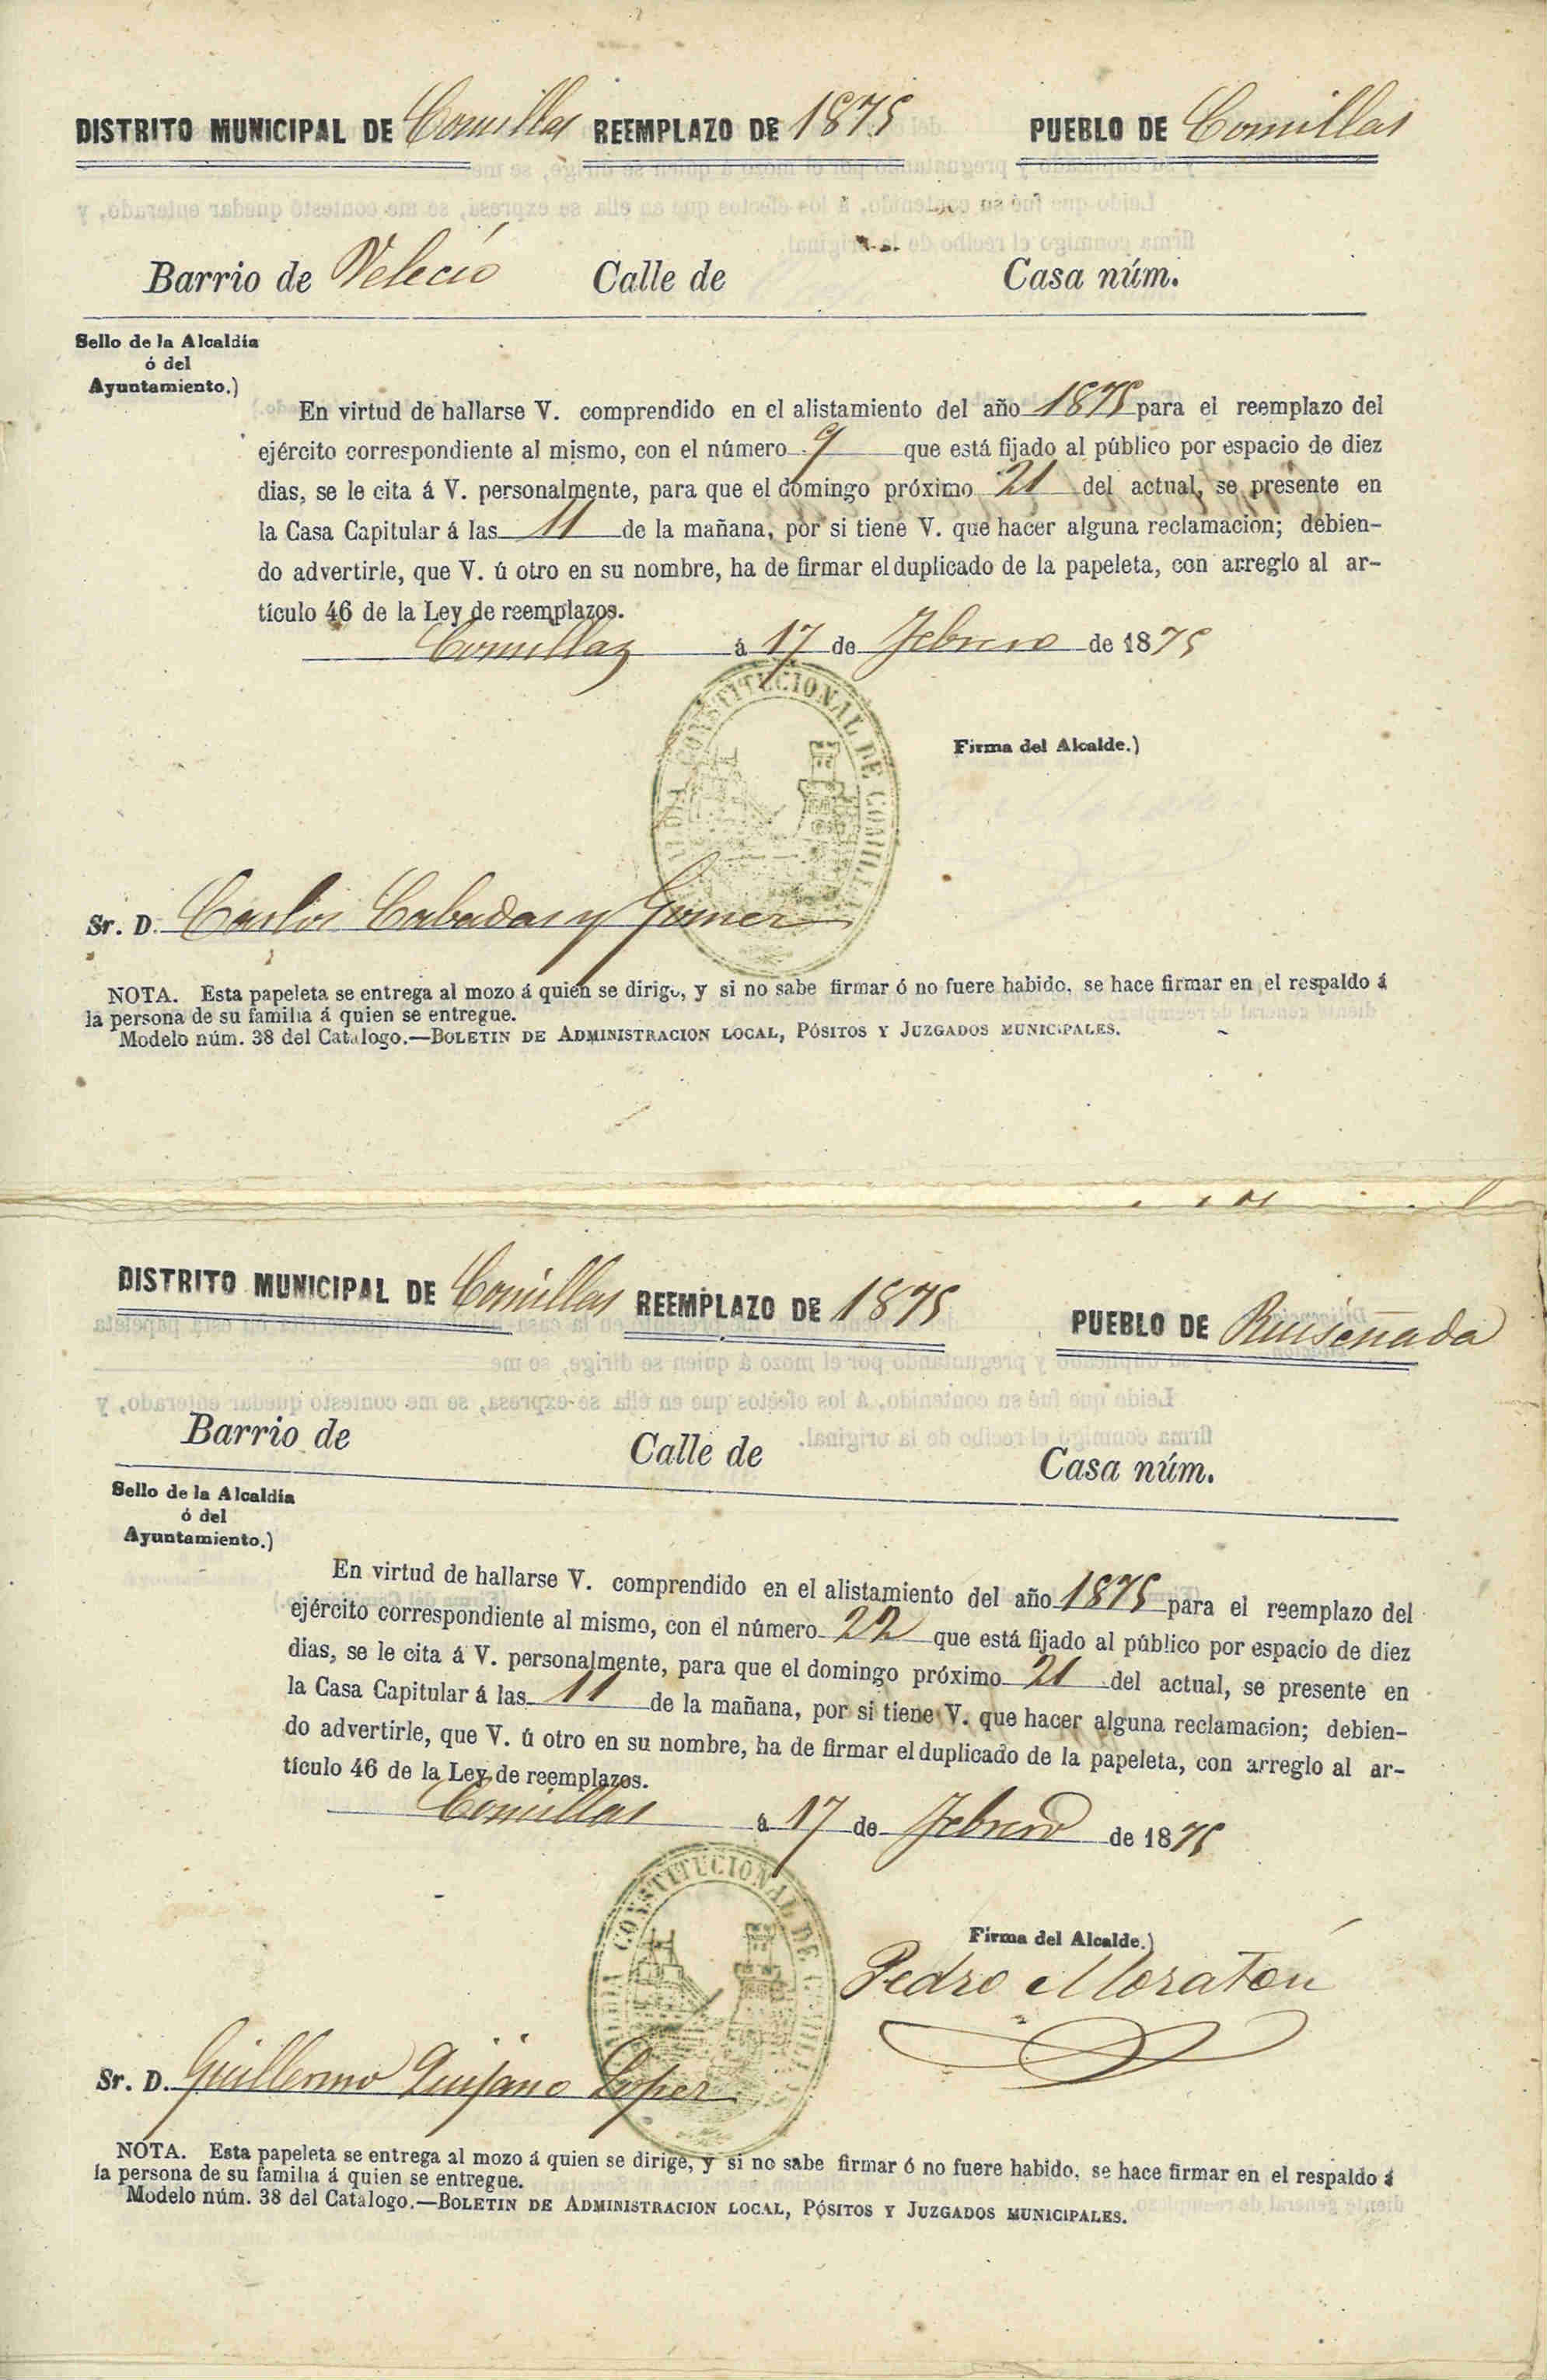 DISTRITO MUNICIPAL DE Comillas REEMPLAZO DE 1875 PUEBLO DE Comillas
Barrio de Velecío Calle de Casa núm.
Sello de la Alcaldía
ó del
Ayuntamiento.)
En virtud de hallarse V. comprendido en el alistamiento del año 1875 para el reemplazo del
ejército correspondiente al mismo, con el número 9 que está fijado al público por espacio de diez
dias, se le cita á V. personalmente, para que el domingo próximo 21 del actual, se presente en
la Casa Capitular á las 11 de la mañana, por si tiene V. que hacer alguna reclamacion; debien-
do advertirle, que V. ú otro en su nombre, ha de firmar el duplicado de la papeleta, con arreglo al ar-
tículo 46 de la Ley de reemplazos.
Comillas á 17 de Febrero de 1875
CONSTITUCIONAL DE COMILLAS
Firma del Alcalde.)
Sr. D. Carlos Cabadas y Gomez
NOTA. Esta papeleta se entrega al mozo á quien se dirige, y si no sabe firmar ó no fuere habido, se hace firmar en el respaldo á
la persona de su familia á quien se entregue.
Modelo núm. 38 del Catalogo.—BOLETIN DE ADMINISTRACION LOCAL, PÓSITOS Y JUZGADOS MUNICIPALES.
DISTRITO MUNICIPAL DE Comillas REEMPLAZO DE 1875 PUEBLO DE Ruiseñada
Barrio de Calle de Casa núm.
Sello de la Alcaldía
ó del
Ayuntamiento.)
En virtud de hallarse V. comprendido en el alistamiento del año 1875 para el reemplazo del
ejército correspondiente al mismo, con el número 22 que está fijado al público por espacio de diez
dias, se le cita á V. personalmente, para que el domingo próximo 21 del actual, se presente en
la Casa Capitular á las 11 de la mañana, por si tiene V. que hacer alguna reclamacion; debien-
do advertirle, que V. ú otro en su nombre, ha de firmar el duplicado de la papeleta, con arreglo al ar-
tículo 46 de la Ley de reemplazos.
Comillas á 17 de Febrero de 1875
CONSTITUCIONAL DE COMILLAS
Firma del Alcalde.)
Pedro Moraton
Sr. D. Guillermo Quijano Lopez
NOTA. Esta papeleta se entrega al mozo á quien se dirige, y si no sabe firmar ó no fuere habido, se hace firmar en el respaldo á
la persona de su familia á quien se entregue.
Modelo núm. 38 del Catalogo.—BOLETIN DE ADMINISTRACION LOCAL, PÓSITOS Y JUZGADOS MUNICIPALES.